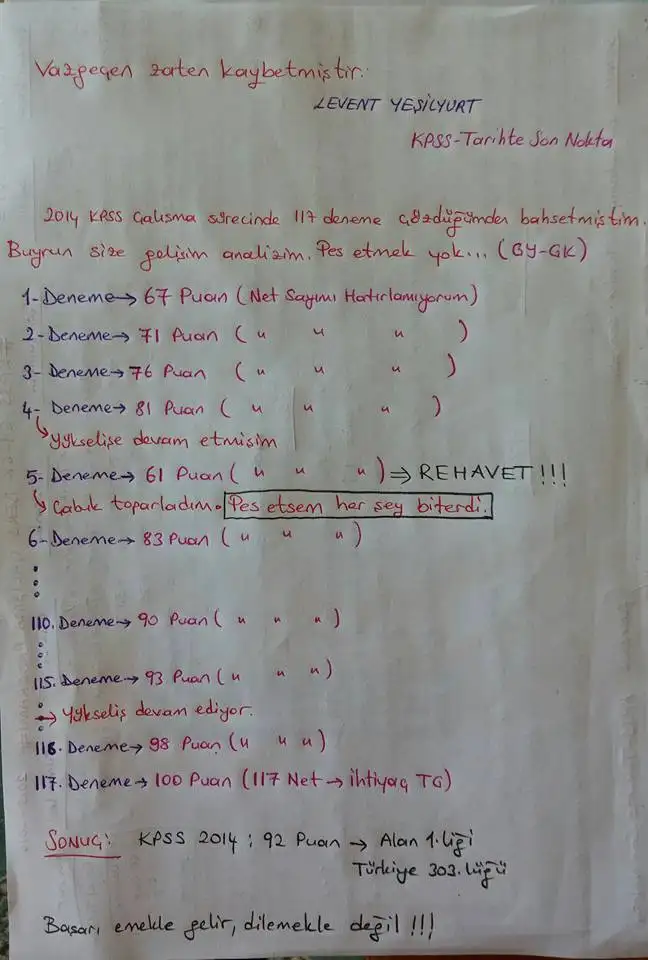 Vazgeçen zaten kaybetmiştir.
LEVENT YEŞİLYURT
KPSS-Tarihte Son Nokta
2014 KPSS Çalışma sürecinde 117 deneme çözdüğümden bahsetmiştim.
Buyrun size gelişim analizim. Pes etmek yok... (GY-GK)
1- Deneme → 67 Puan (Net Sayımı Hatırlamıyorum)
2- Deneme → 71 Puan ( " " " )
3- Deneme → 76 Puan ( " " " )
4- Deneme → 81 Puan ( " " " )
↳ Yükselişe devam etmişim
5- Deneme → 61 Puan ( " " " ) ⇒ REHAVET !!!
↳ Çabuk toparladım. Pes etsem her şey biterdi.
6- Deneme → 83 Puan ( " " " )
110. Deneme → 90 Puan ( " " " )
115. Deneme → 93 Puan ( " " " )
→ Yükseliş devam ediyor.
116. Deneme → 98 Puan ( " " " )
117. Deneme → 100 Puan (117 Net → ihtiyaç TG)
SONUÇ: KPSS 2014 : 92 Puan → Alan 1.liği
Türkiye 303.lüğü
Başarı emekle gelir, dilemekle değil !!!